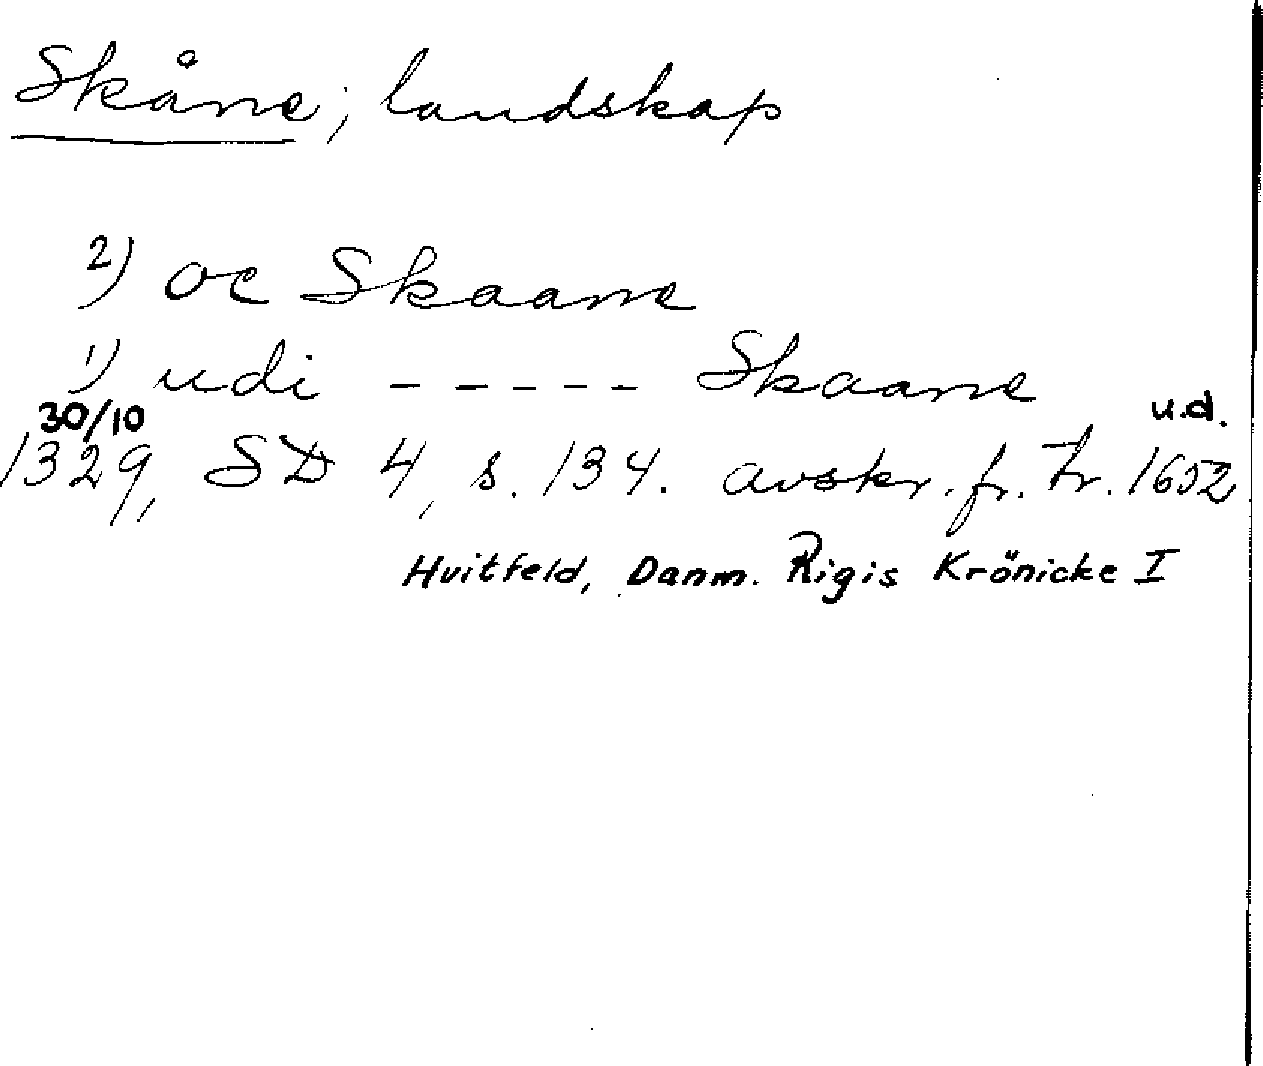 Skåne, landskap
2) oc Skaane
1) udi - - - - - Skaane
30/10 u.d.
1329, SD 4, s. 134. avskr. fr. tr. 1652
Huitfeld, Danm. Rigis Krönicke I